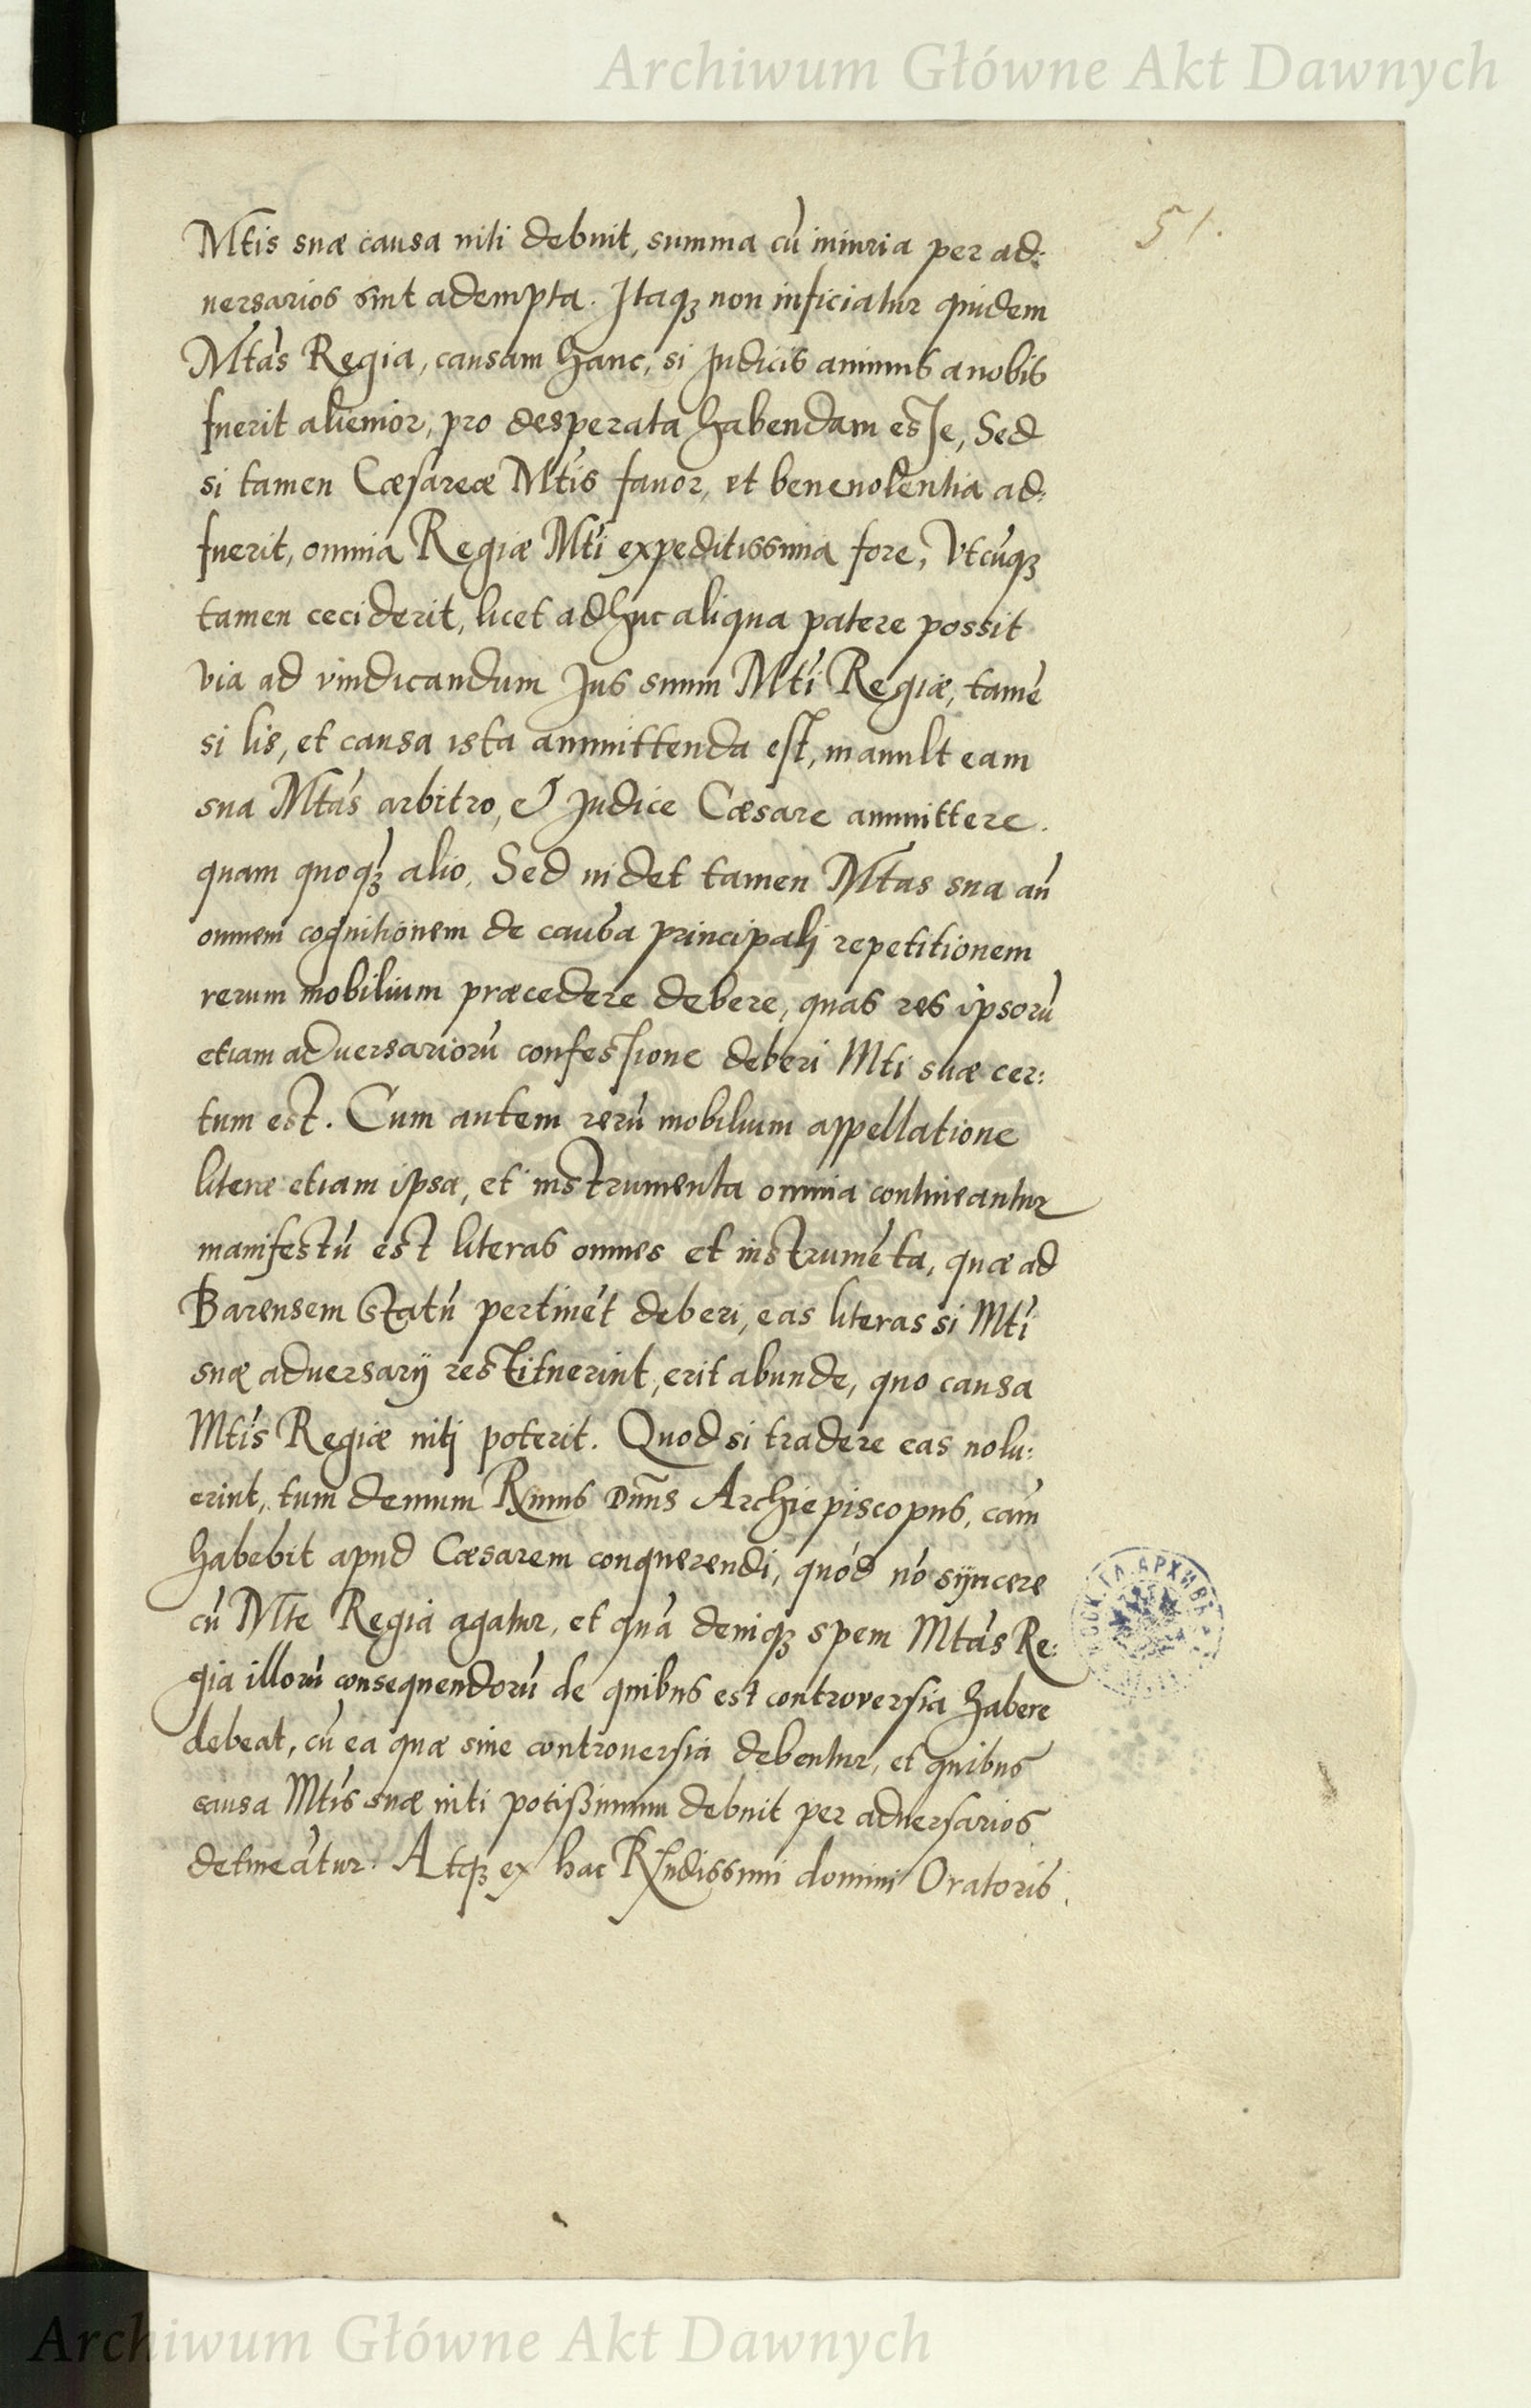 Archiwum Główne Akt Dawnych
51.
Mtis suæ causa niti debuit, summa cũ iniuria per ad:
uersarios sint adempta. Itaqꝫ non inficiatur quidem
Mtas Regia, causam hanc, si Iudicis animus a nobis
fuerit alienior, pro desperata habendam esse, Sed
si tamen Cæsareæ Mtis fauor, et beneuolentia ad:
fuerit, omnia Regiæ Mti expeditissima fore, Vtcũqꝫ
tamen ceciderit, licet adhuc aliqua patere possit
via ad vindicandum Jus suum Mti Regiæ, tamẽ
si lis, et causa ista ammittenda est, mauult eam
sua Mtas arbitro, et Iudice Cæsare ammittere.
quam quoqꝫ alio. Sed uidet tamen Mtas sua añ
omnem cognitionem de causa principali repetitionem
rerum mobilium præcedere debere, quas res ipsorũ
etiam aduersariorũ confessione deberi Mti suæ cer:
tum est. Cum autem rerũ mobilium appellatione
literæ etiam ipsæ, et instrumenta omnia contineantur
manifestũ est literas omnes et instrumẽta, quæ ad
Barensem statũ pertinẽt deberi, eas literas si Mti
suæ aduersarij restituerint, erit abunde, quo causa
Mtis Regiæ niti poterit. Quod si tradere eas nolu:
erint, tum demum Rmus Dnus Archiepiscopus, cãm
habebit apud Cæsarem conquerendi, quód nõ syncere
cũ Mte Regia agatur, et quã deniqꝫ spem Mtas Re:
gia illorũ consequendorũ de quibus est controversia habere
debeat, cũ ea quæ sine controuersia debentur, et quibus
causa Mtis suæ niti potißimum debuit per aduersarios
detineãtur. Atqꝫ ex hac Rndissimi domini Oratoris
Archiwum Główne Akt Dawnych